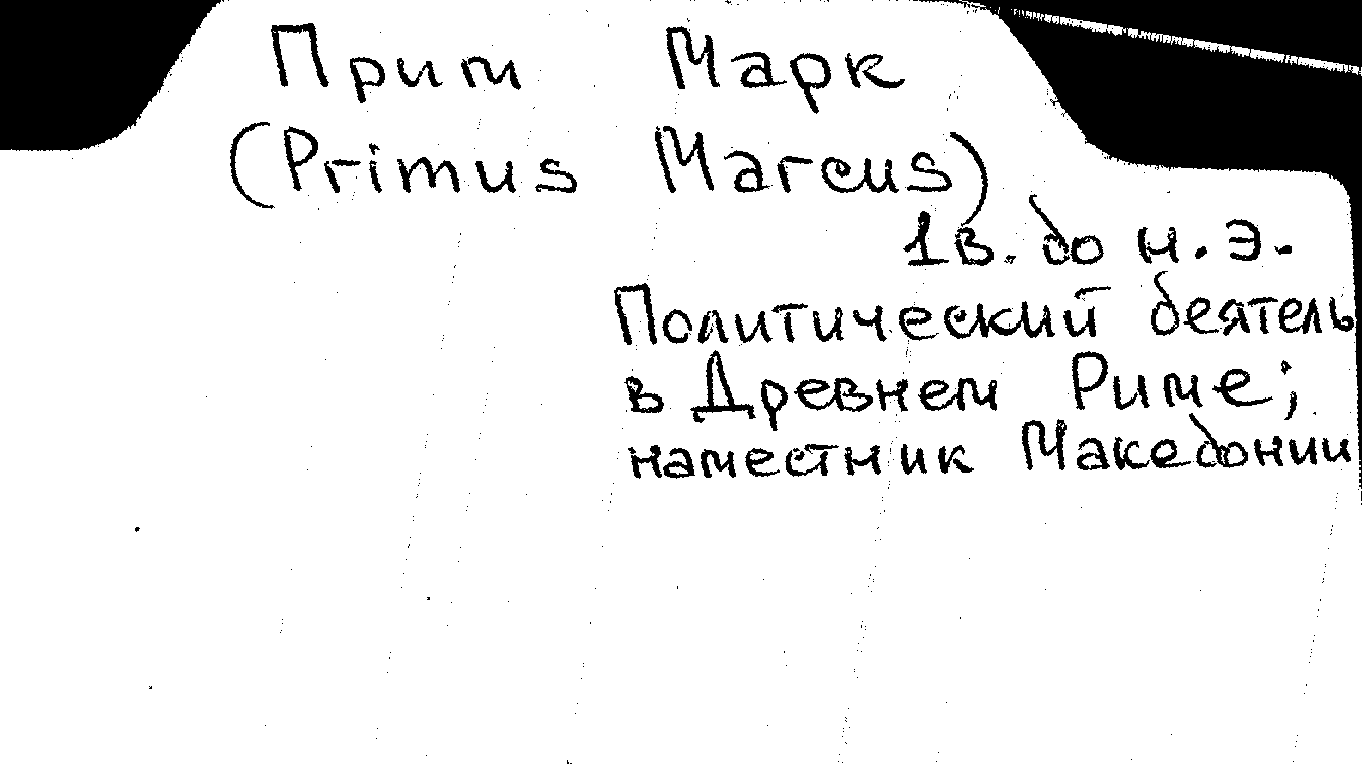 Прим Марк
(Primus Marcus)
1 в. до н. э.
Политический деятель
в Древнем Риме;
наместник Македонии